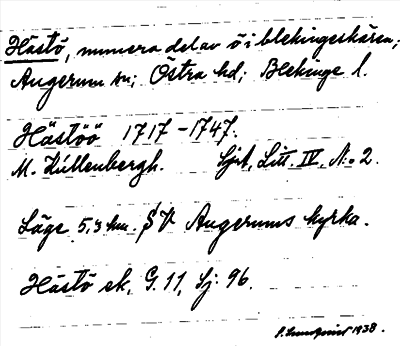 Hästö, numera del av ö i blekingeskären;
Augerum sn; Östra hd; Blekinge l.
Hästöö 1717-1747.
M. Kullenbergh. Sjrt, Litt. IV, N:o 2.
Läge 5,3 km. SV Augerums kyrka.
Hästö ek, G. 11, Sj: 96.
S. Lundquist 1938.